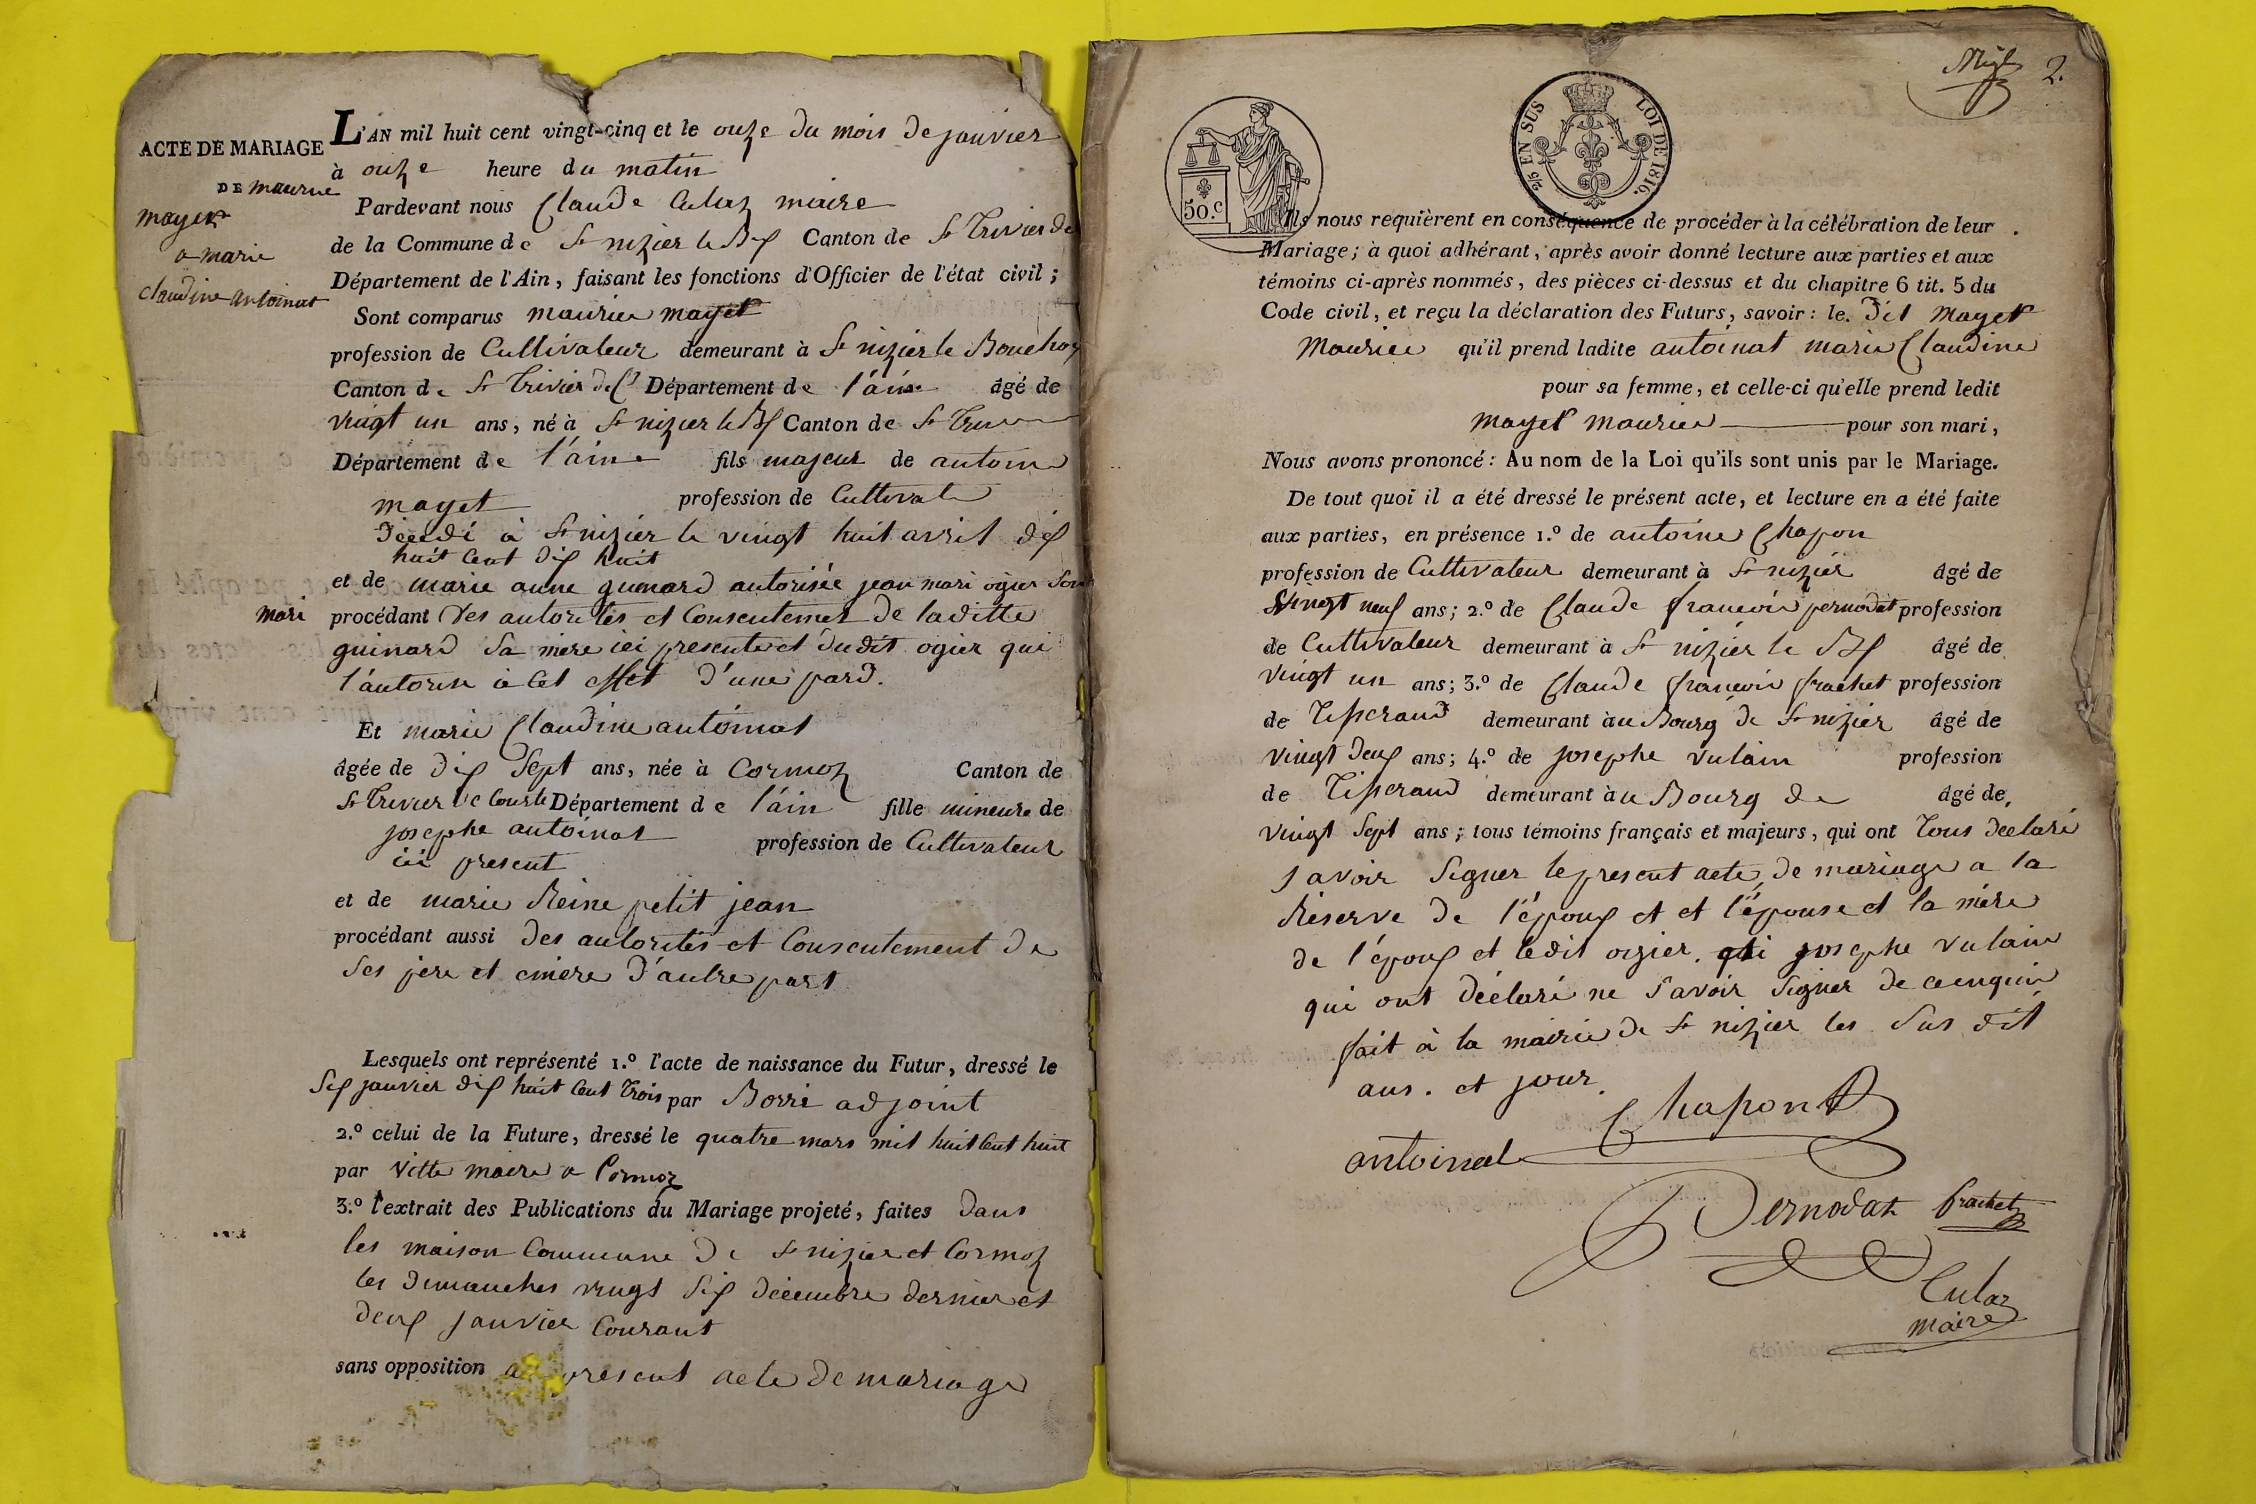 ACTE DE MARIAGE
DE maurice
mayet
a marie
claudine antoinat
L'AN mil huit cent vingt-cinq et le onze du mois de janvier
à onze heure du matin
Pardevant nous Claude Culaz maire
de la Commune de St nizier le Bx Canton de St Trivier de
Département de l'Ain, faisant les fonctions d'Officier de l'état civil ;
Sont comparus maurice mayet
profession de Cultivateur demeurant à St nizier le Bouchoux
Canton de St Trivier de Ct Département de l'ain âgé de
vingt un ans, né à St nizier le Bx Canton de St Trivier
Département de l'ain fils majeur de antoine
mayet profession de Cultivate
décédé à St nizier le vingt huit avril dix
huit cent dix huit
et de marie anne guinard autorisée jean mari ogier son
mari
procédant des autorités et Consentemet de laditte
guinard sa mère ici presente et dudit ogier qui
l'autorise à cet effet d'une pard.
Et marie Claudine antoinat
âgée de dix sept ans, née à Cormoz Canton de
St Trivier de Courte Département de l'ain fille mineure de
josephe antoinat profession de Cultivateur
ici present
et de marie Reine petit jean
procédant aussi des autorités et Consentement de
ses père et mère d'autre part
Lesquels ont représenté 1.º l'acte de naissance du Futur, dressé le
six janvier dix huit cent trois par Borri adjoint
2.º celui de la Future, dressé le quatre mars mil huit cent huit
par vitte maire a Cormoz
3.º l'extrait des Publications du Mariage projeté, faites dans
les maison Commune de St nizier et Cormoz
les dimanches vingt six décembre dernier et
deux janvier Courant
sans opposition au present acte de mariage
2.
2/5 EN SUS LOI DE 1816.
50.c
Ils nous requièrent en conséquence de procéder à la célébration de leur
Mariage; à quoi adhérant, après avoir donné lecture aux parties et aux
témoins ci-après nommés, des pièces ci-dessus et du chapitre 6 tit. 5 du
Code civil, et reçu la déclaration des Futurs, savoir : le dit mayet
Maurice qu'il prend ladite antoinat marie Claudine
pour sa femme, et celle-ci qu'elle prend ledit
mayet maurice pour son mari,
Nous avons prononcé : Au nom de la Loi qu'ils sont unis par le Mariage.
De tout quoi il a été dressé le présent acte, et lecture en a été faite
aux parties, en présence 1.º de antoine Chapon
profession de Cultivateur demeurant à St nizier âgé de
vingt neuf ans; 2.º de Claude françois pernodat profession
de Cultivateur demeurant à St nizier le Bx âgé de
vingt un ans; 3.º de Claude françois frachet profession
de Tisserand demeurant à u Bourg de St nizier âgé de
vingt deux ans; 4.º de josephe vulain profession
de Tisserand demeurant à u Bourg de âgé de,
vingt sept ans; tous témoins français et majeurs, qui ont tous déclaré
savoir signer le present acte de mariage a la
Réserve de l'époux et et l'épouse et la mère
de l'époux et ledit ogier. qui josephe vulain
qui ont déclaré ne savoir signer de ce enquis
fait à la mairie de St nizier les sus dit
ans. et jour.
Chapon
antoinat
Pernodat frachet
Culaz
maire